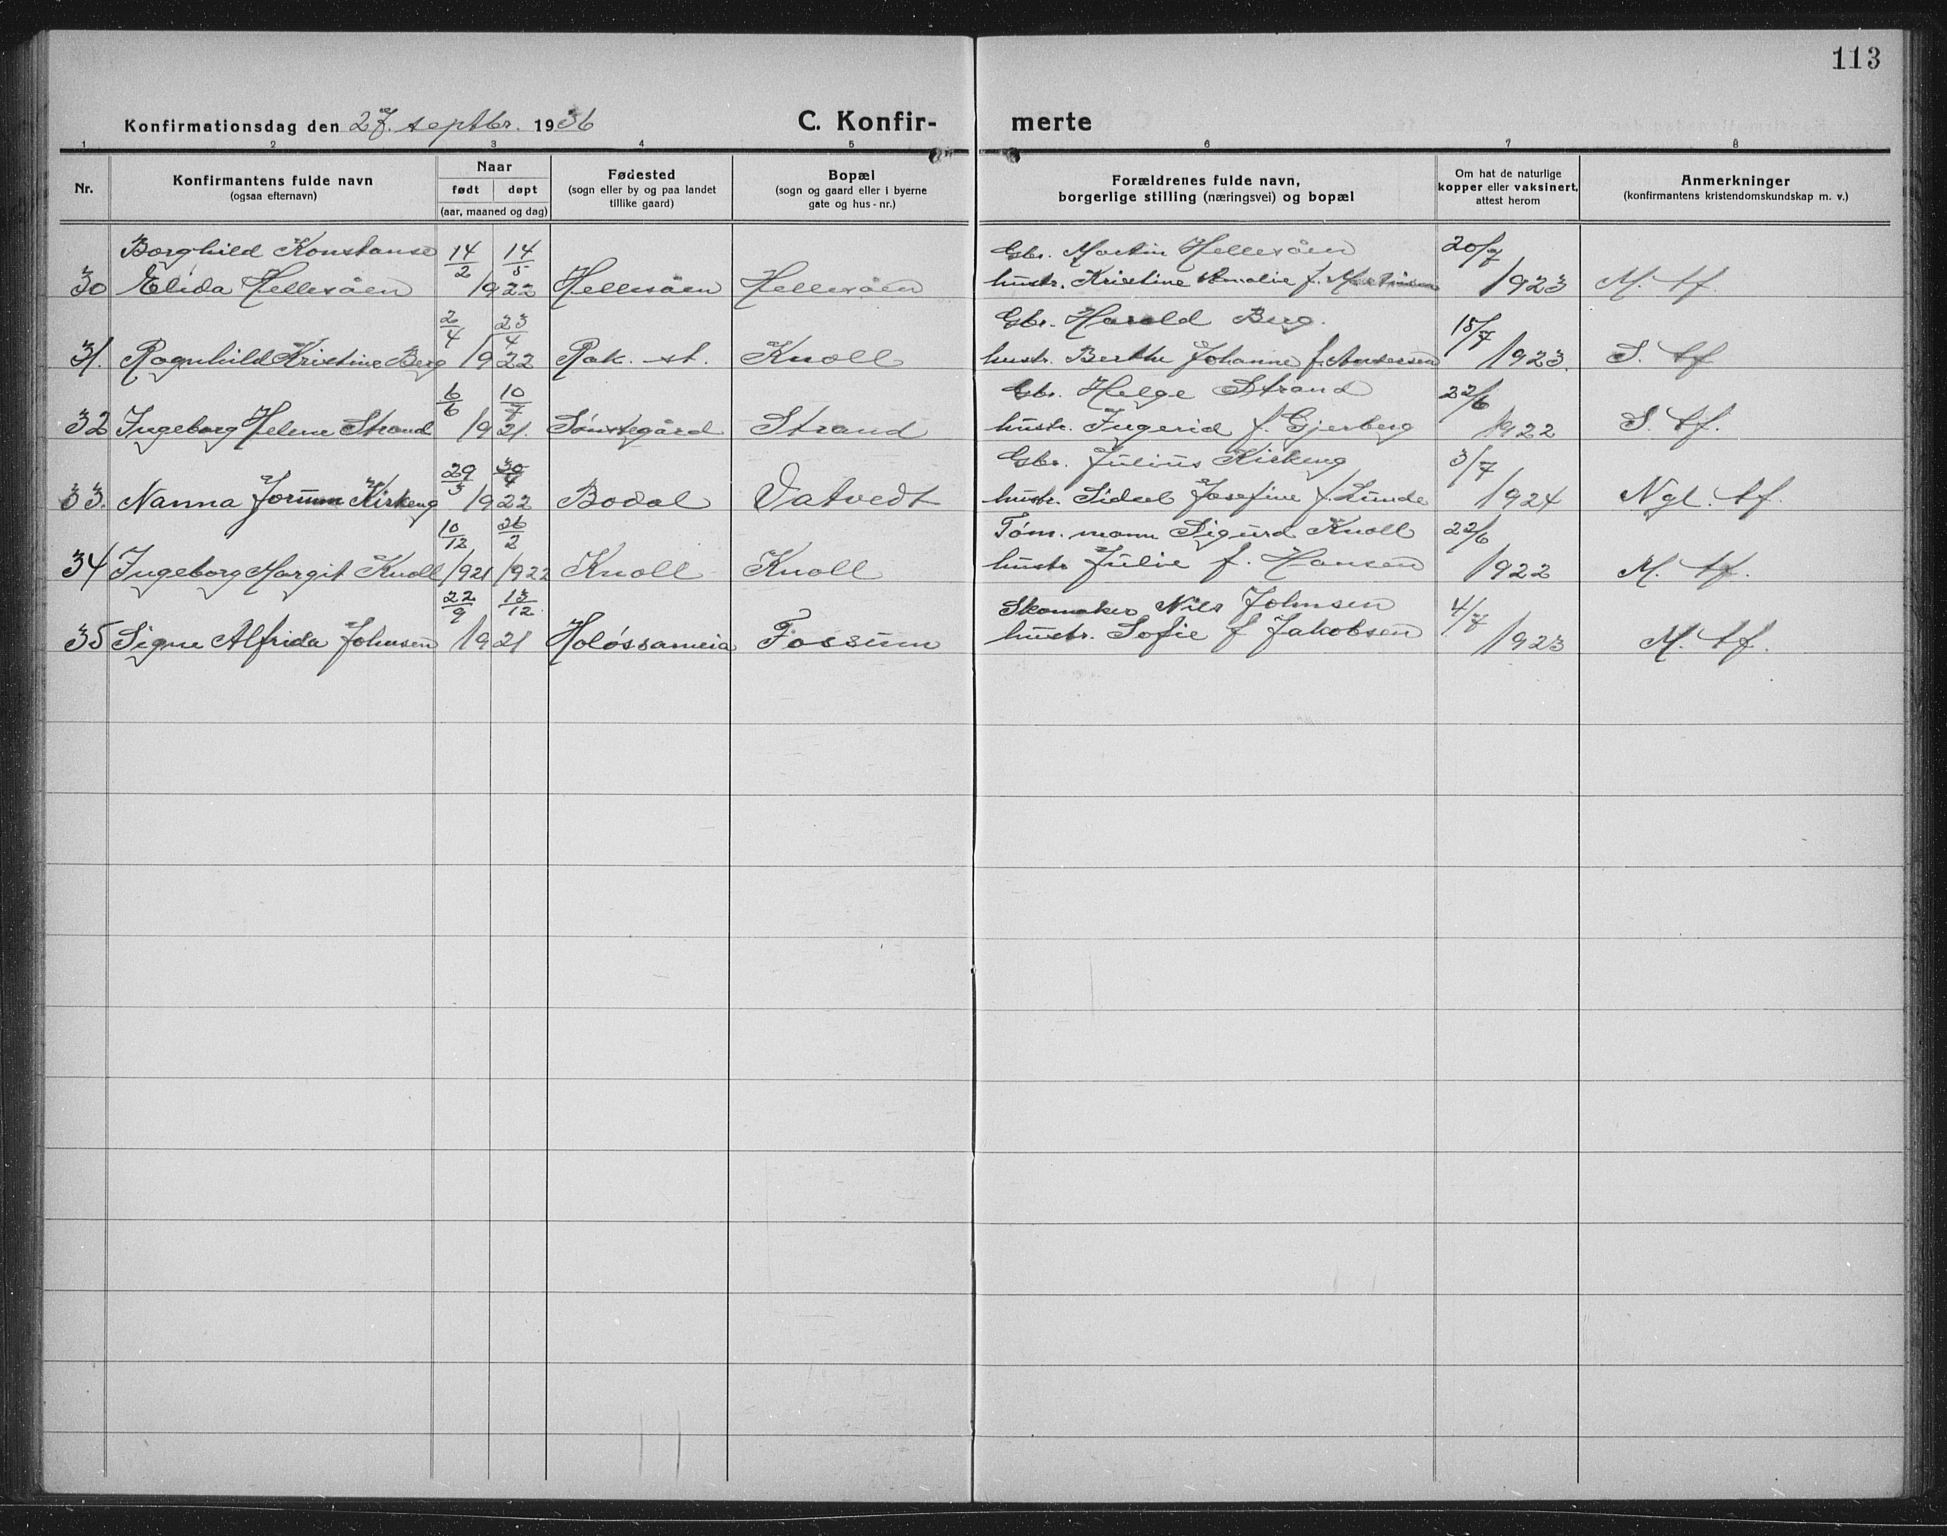 113
Konfirmationsdag den 27. septbr. 1936
C. Konfir- merte
1 2 3 4 5 6 7 8
Nr.
Konfirmantens fulde navn
(ogsaa efternavn)
Naar
født døpt
(aar, maaned og dag)
Fødested
(sogn eller by og paa landet
tillike gaard)
Bopæl
(sogn og gaard eller i byerne
gate og hus-nr.)
Forældrenes fulde navn,
borgerlige stilling (næringsvei) og bopæl
Om hat de naturlige
kopper eller vaksinert,
attest herom
Anmerkninger
(konfirmantens kristendomskundskap m. v.)
Borghild Konstanse 14/2 14/5 Gbr. Martin Hellesåen 20/7
30 Elida Hellesåen 1922 Hellesåen Hellesåen hustr. Kristine Amalie f. 1923 M. tf.
2/4 23/4 Gbr. Harald Berg. 18/7
31. Ragnhild Kristine Berg 1922 Rak. st. Knoll hustr. Berthe Johanne f. Andersen 1923. S. tf
6/6 10/7 Gbr. Helge Strand 22/6
32 Ingeborg Helene Strand 1921. Strand hustr. Ingerid f. Gjerberg 1922 S. tf.
29/3 30/4 Gbr. Julius Kirkeng 3/7
33. Nanna Jorunn Kirkeng 1922 Bodal Vatvedt hustr. Sidsel Josefine f. Lunde 1924 Ngl. tf.
10/12 26/2 Tøm. mann Sigurd Knoll 22/6
34 Ingeborg Margit Knoll 1921 1922 Knoll Knoll hustr. Julie f. Hansen 1922 M. tf.
22/9 13/12. Skomaker Nils Johnsen 4/7
35 Signe Alfrida Johnsen 1921 Fossum hustr. Sofie f Jakobsen 1923 M. tf.